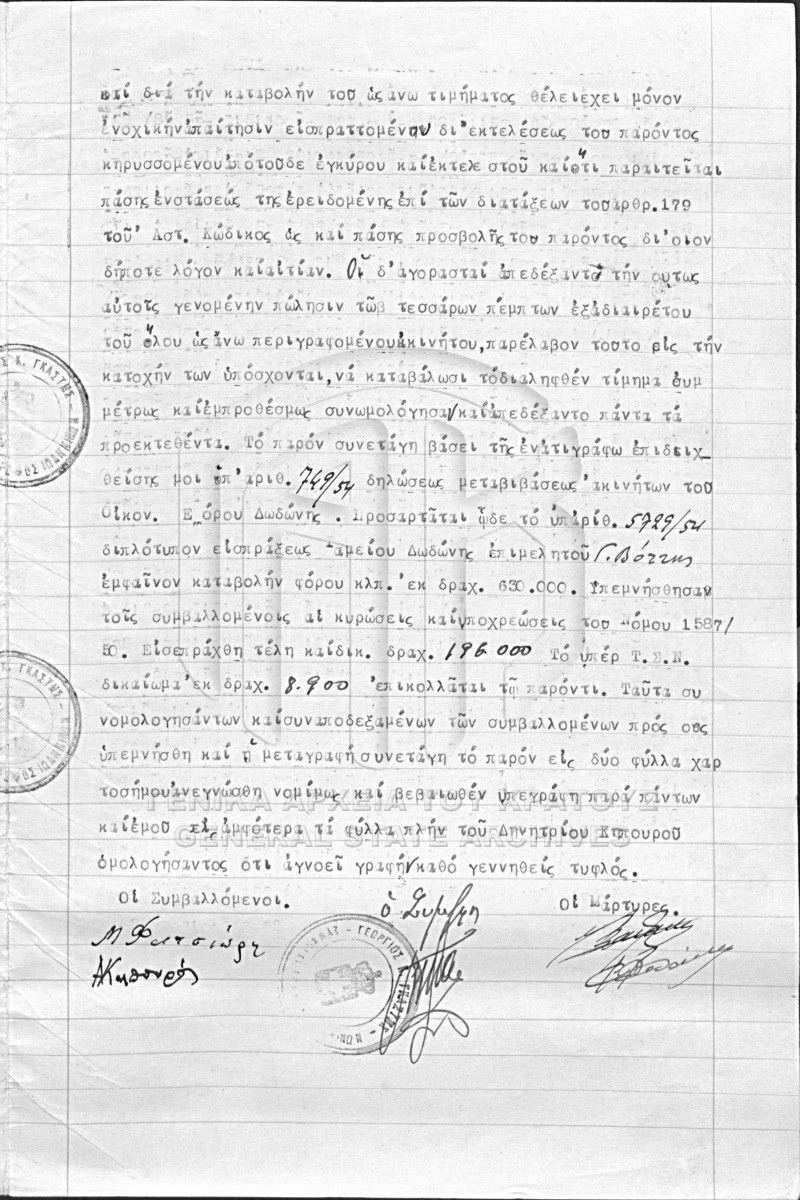 καί διά τήν καταβολήν του ὡς ἄνω τιμήματος θέλει ἔχει μόνον
ἐνοχικήν ἀπαίτησιν εἰσπραττομένην δι' ἐκτελέσεως του παρόντος
κηρυσσομένου ἀπό τοῦδε ἐγκύρου καί ἐκτελεστοῦ καί ὅτι παραιτεῖται
πάσης ἐνστάσεώς της ἐρειδομένης ἐπί τῶν διατάξεων του αρθρ.179
τοῦ Αστ. Κώδικος ὡς καί πάσης προσβολῆς του παρόντος δι' οιον
δήποτε λόγον καί αἰτίαν. Οἱ δ' ἀγορασταί ἀπεδέξαντο τήν ουτως
αὐτοῖς γενομένην πώλησιν τῶβ τεσσάρων πέμπτων ἐξ ἀδιαιρέτου
τοῦ ὅλου ὡς ἄνω περιγραφομένου ἀκινήτου, παρέλαβον τουτο εἰς τήν
κατοχήν των ὑπόσχονται, νά καταβάλωσι τό διαληφθέν τίμημα συμ
μέτρως καί ἐμπροθέσμως συνωμολόγησαν καί ἀπεδέξαντο πάντα τά
προεκτεθέντα. Τό παρόν συνετάγη βάσει τῆς ἐν ἀντιγράφω ἐπιδειχ_
θείσης μοι ὑπ' ἀριθ. 749/54 δηλώσεως μεταβιβάσεως ἀκινήτων του
Οἰκον. Ἐφόρου Δωδώνης . Προσαρτᾶται ὧδε τό ὑπ' ἀριθ. 5729/54
διπλότυπον εἰσπράξεως Ταμείου Δωδώνης ἐπιμελητοῦ Γ. Βόττη
ἐμφαῖνον καταβολήν φόρου κλπ. ἐκ δραχ. 630.000. Υπεμνήσθησαν
τοῖς συμβαλλομένοις αἱ κυρώσεις καί ὑποχρεώσεις του Νόμου 1587/
50. Εἰσεπράχθη τέλη καί δικ. δραχ. 196.000 Τό ὑπέρ Τ.Σ.Ν.
δικαίωμα ἐκ δραχ. 8.900 ἐπικολλᾶται τῷ παρόντι. Ταῦτα συ
νομολογησάντων καί συναποδεξαμένων τῶν συμβαλλομένων πρός ους
ὑπεμνήσθη καί ἡ μεταγραφή συνετάγη τό παρόν εἰς δύο φύλλα χαρ
τοσήμου ἀνεγνώσθη νομίμως καί βεβαιωθέν ὑπεγράφη παρά πάντων
ΓΕΝΙΚΑ ΑΡΧΕΙΑ ΤΟΥ ΚΡΑΤΟΥΣ
καί ἐμοῦ εἰς ἀμφότερα τά φύλλα πλήν τοῦ Δημητρίου Κηπουροῦ
GENERAL STATE ARCHIVES
ὁμολογήσαντος ὅτι ἀγνοεῖ γραφήν καθό γεννηθείς τυφλός.
Οἱ Συμβαλλόμενοι. ὁ Συμ/φος Οἱ Μάρτυρες.
ΑΚηπουρός
ΓΕΩΡΓΙΟΣ Κ. ΓΚΑΣΤΗΣ